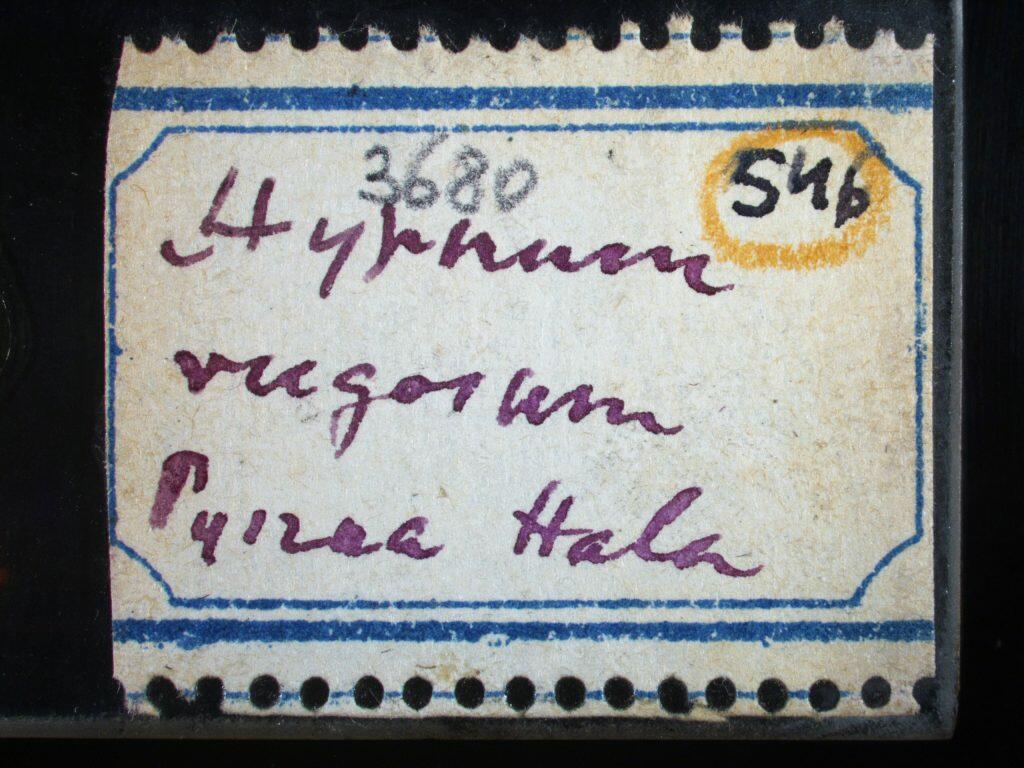 3680
546
Hypnum
rugosum
Pyszna Hala